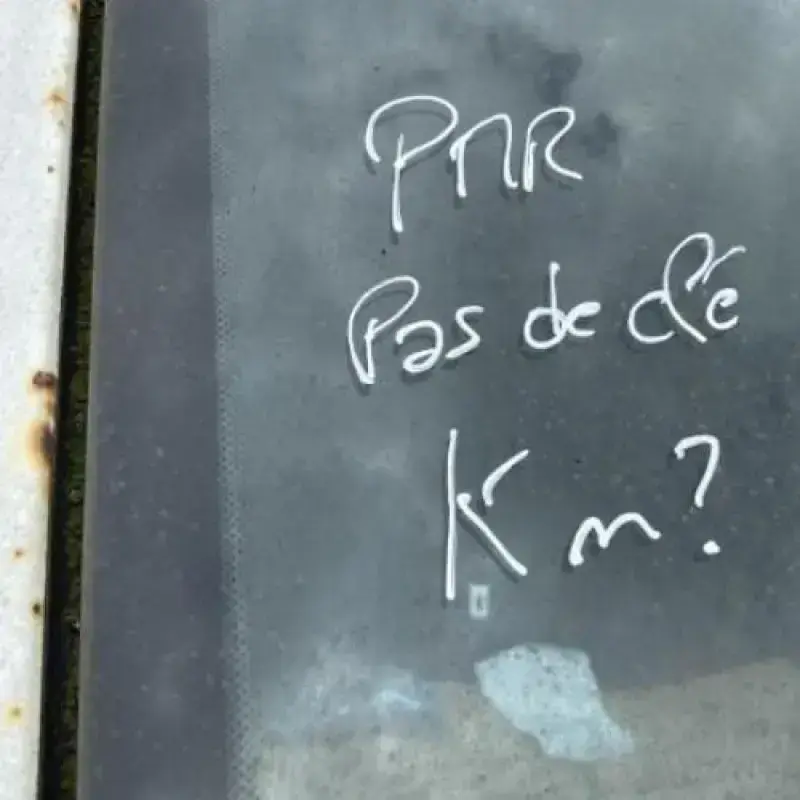 PMR
Pas de clé
Km ?